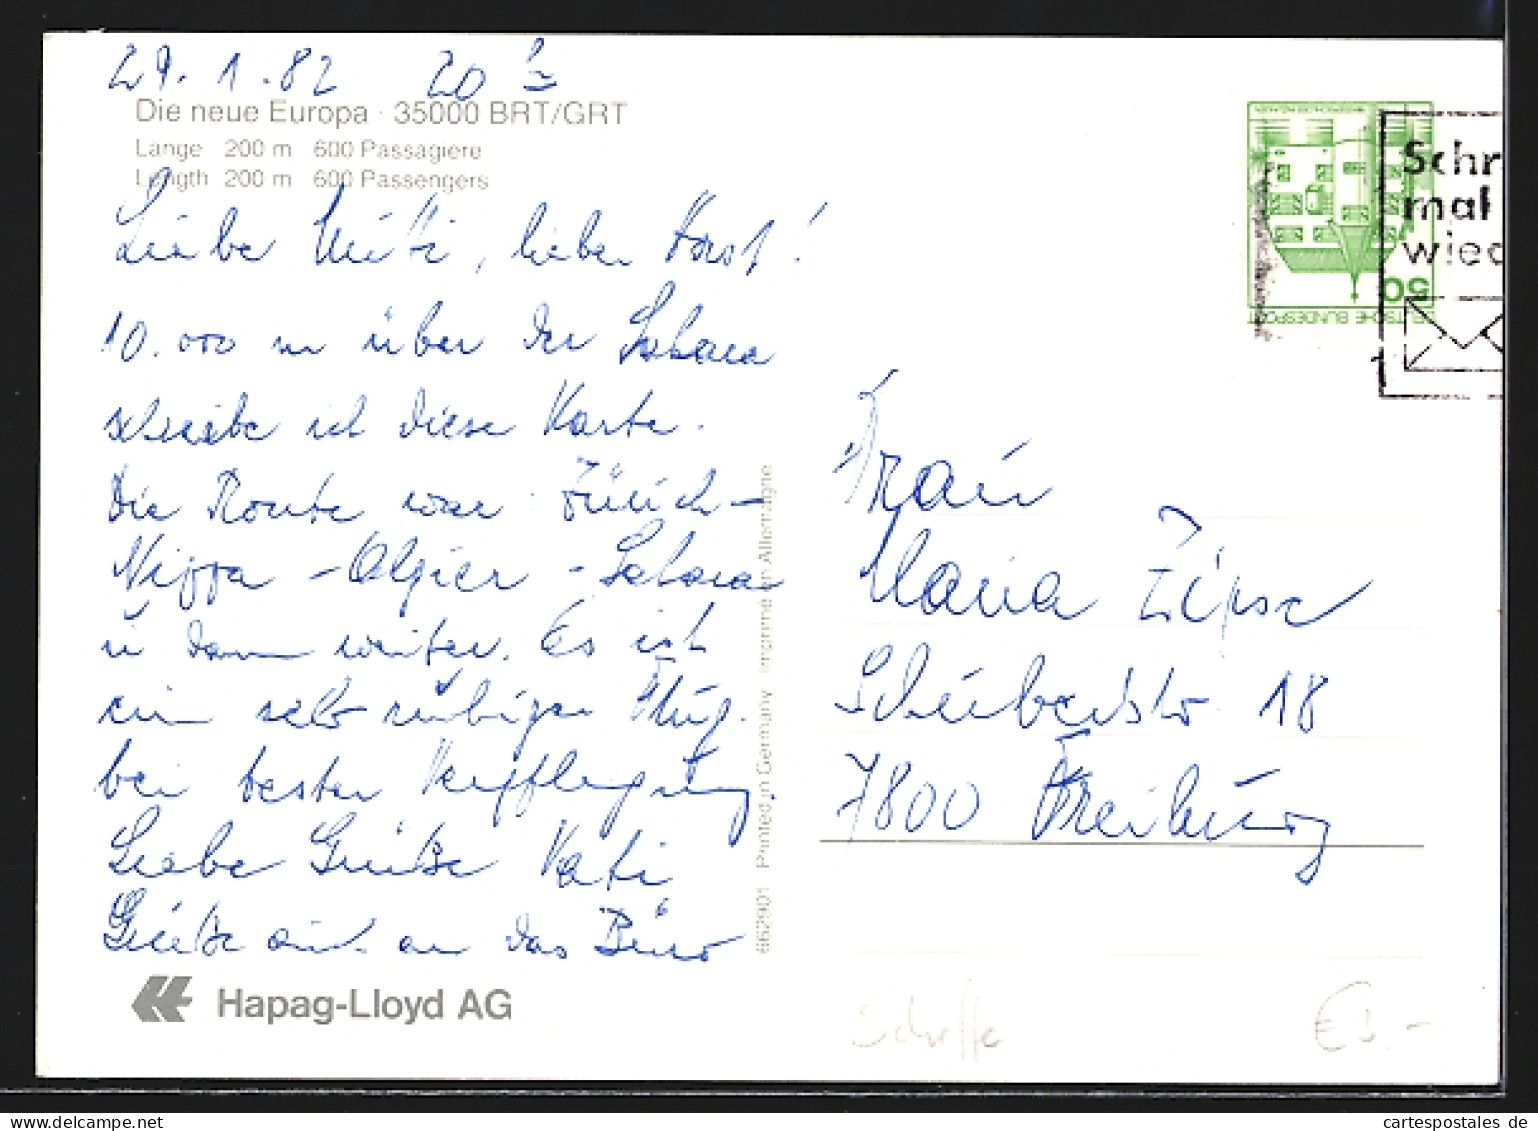 29.1.82 20
Die neue Europa · 35000 BRT/GRT
Länge 200 m 600 Passagiere
Length 200 m 600 Passengers
Liebe Mutti, lieber Horst!
10.000 m über der Sahara
schreibe ich diese Karte.
Die Route war Zürich-
Nizza - Algier - Sahara
u dann weiter. Es ist
ein sehr ruhiger Flug.
bei bester Verpflegung.
Liebe Grüße Vati
Grüße auch an das Büro
Hapag-Lloyd AG
662901 Printed in Germany Imprimé en Allemagne
50
DEUTSCHE BUNDESPOST
Schr
mal
wied
Frau
Maria Zipse
18
7800 Freiburg
Schiffe
€ 3.-
cartespostales de